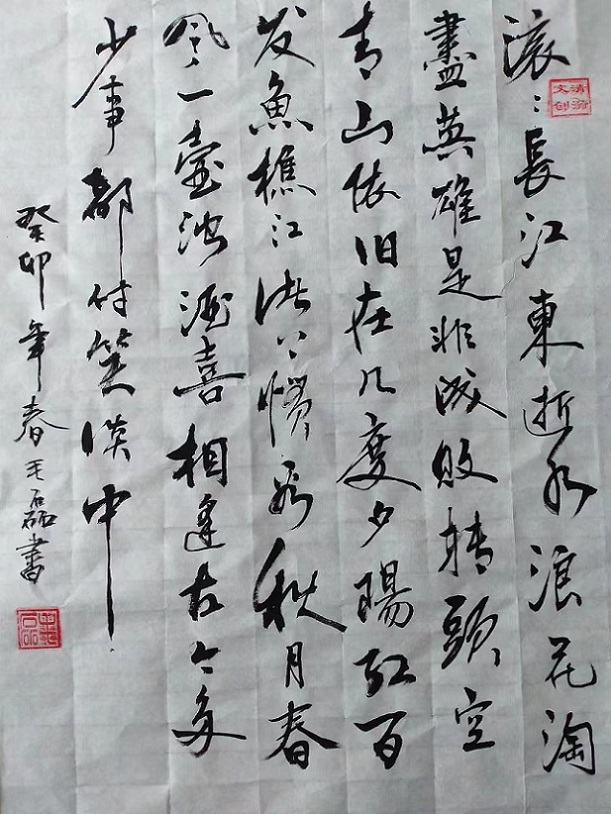 滚:長江東逝水浪花淘
盡英雄是非成败轉頭空
青山依旧在几度夕陽红百
发魚樵江渚上惯看秋月春
风一壶浊酒喜相逢古今多
少事都付笑谈中
癸卯年春王磊書
文创